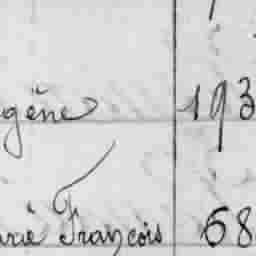 gène 193
arie François 68